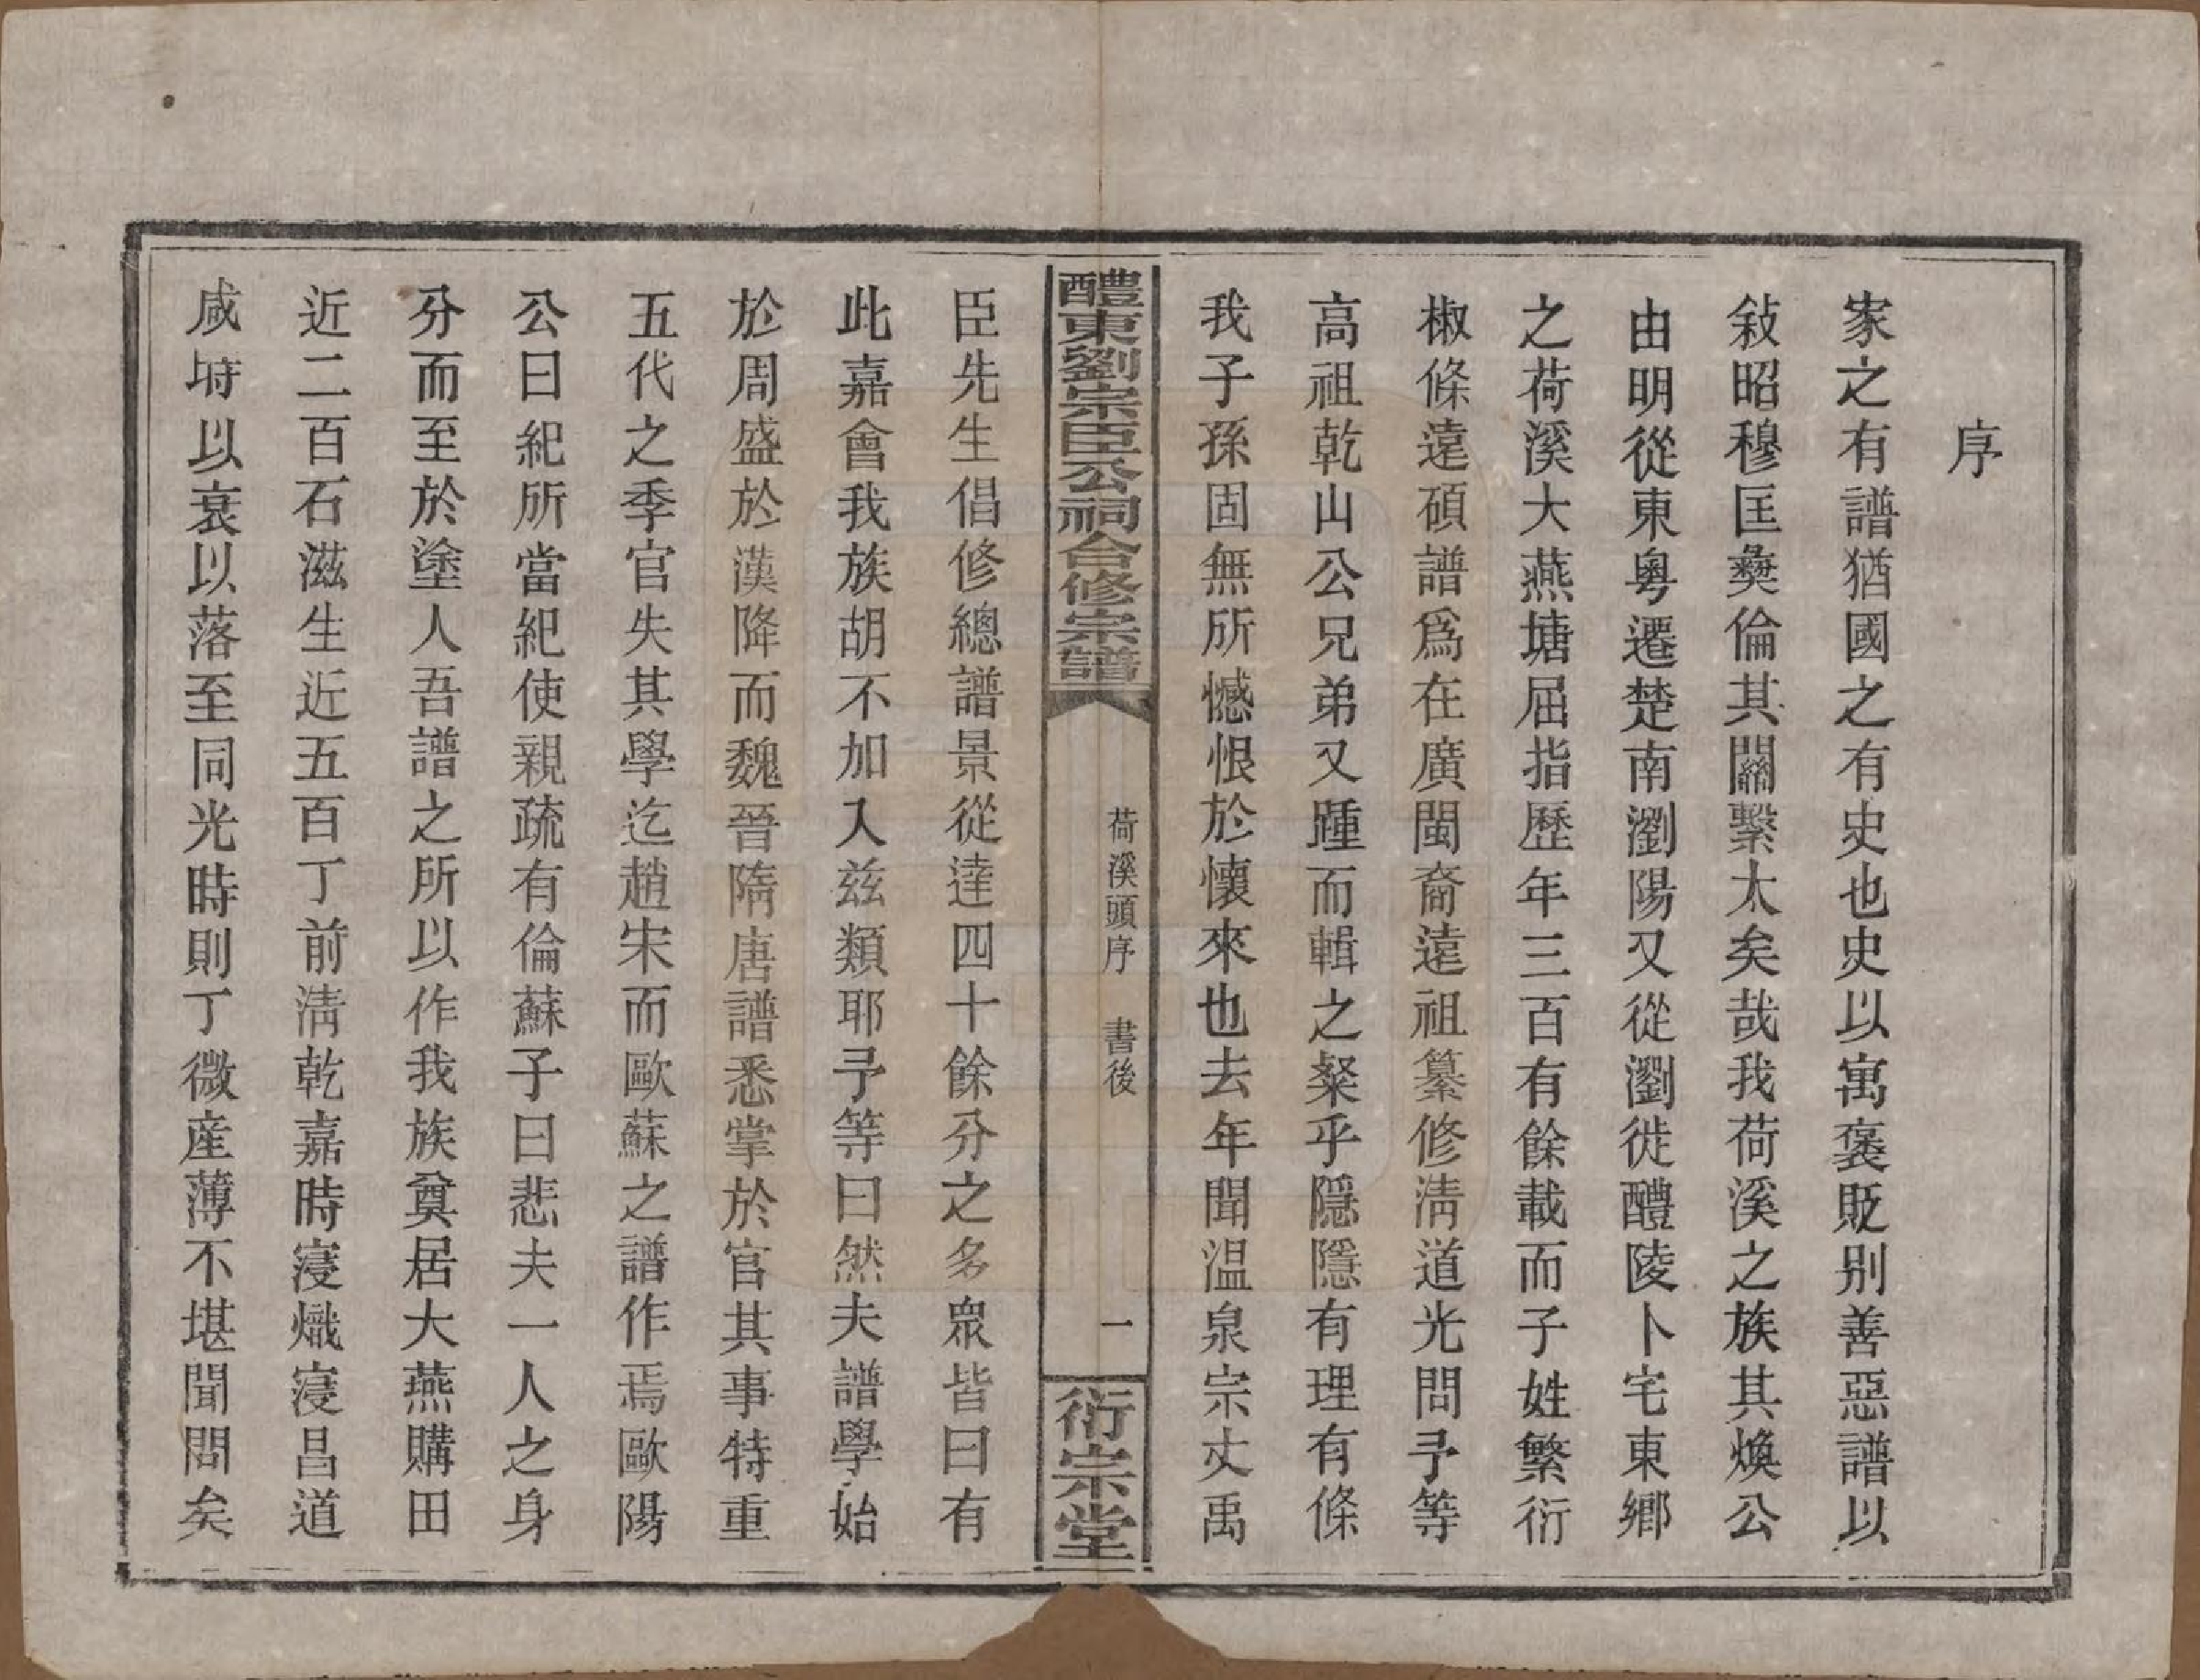 序
家之有譜猶國之有史也史以寓褒貶别善惡譜以
敍昭穆匡彝倫其關繫太矣哉我荷溪之族其煥公
由明從東粤遷楚南瀏陽又從瀏徙醴陵卜宅東鄉
之荷溪大燕塘屈指歷年三百有餘載而子姓繁衍
椒條遠碩譜爲在廣閩裔遠祖纂修淸道光間予等
高祖乾山公兄弟又踵而輯之粲乎隱隱有理有條
我子孫固無所憾恨於懷來也去年聞温泉宗丈禹
醴東劉宗臣公祠合修宗譜
荷溪頭序 書後
一
衍宗堂
臣先生倡修總譜景從達四十餘分之多衆皆曰有
此嘉會我族胡不加入兹類耶予等曰然夫譜學始
於周盛於漢降而魏晉隋唐譜悉掌於官其事特重
五代之季官失其學迄趙宋而歐蘇之譜作焉歐陽
公曰紀所當紀使親疏有倫蘇子曰悲夫一人之身
分而至於塗人吾譜之所以作我族奠居大燕購田
近二百石滋生近五百丁前淸乾嘉時寖熾寖昌道
咸時以衰以落至同光時則丁微産薄不堪聞問矣